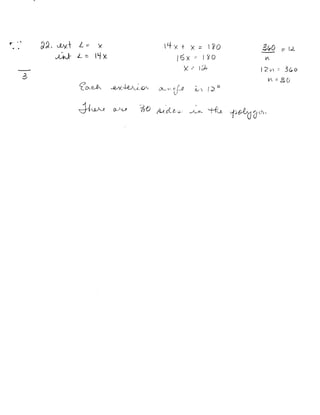 22. ext ∠ = x    14x + x = 180    360/n = 12
int ∠ = 14x    15x = 180    12n = 360
3    x = 12    n = 30
Each exterior angle is 12°
There are 30 sides in the polygon.